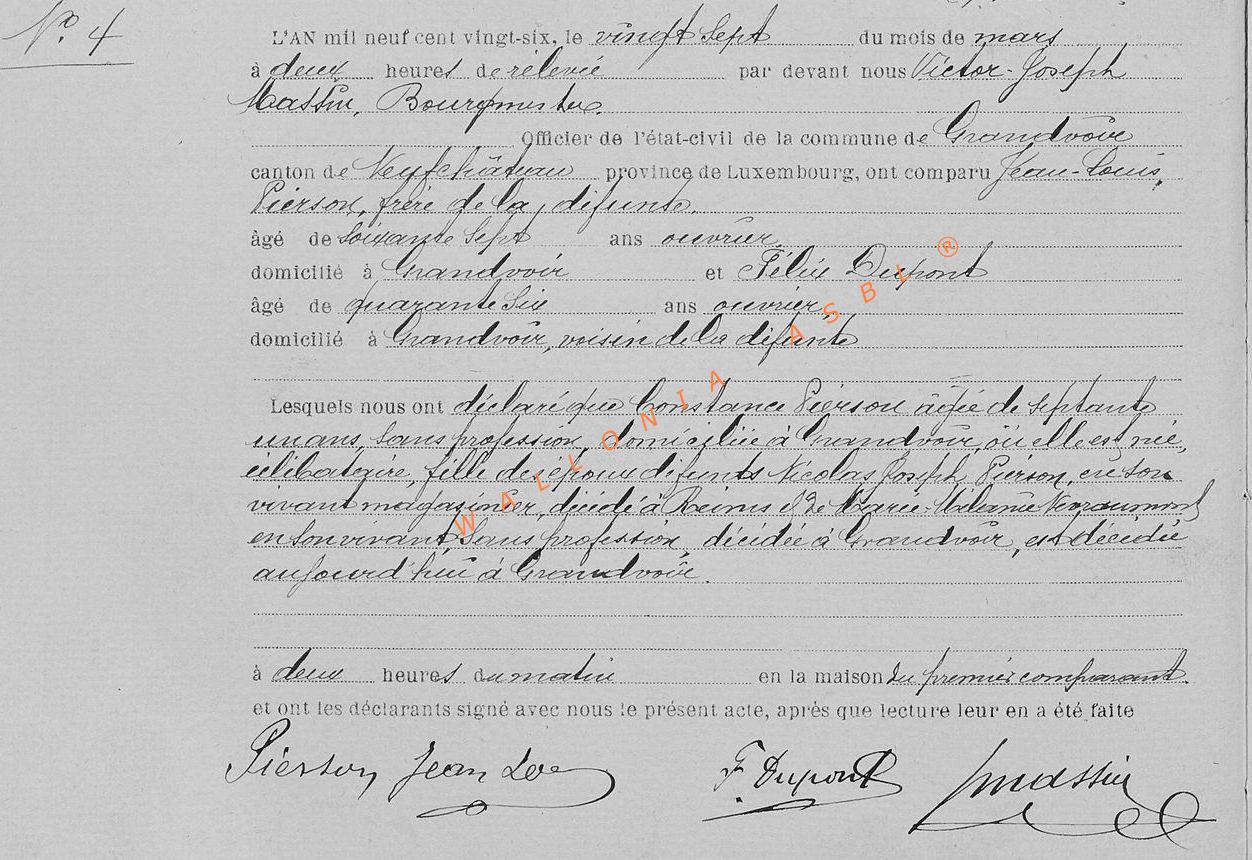 N°. 4
L'AN mil neuf cent vingt-six, le vingt sept du mois de mars
à deux heures de relevée par devant nous Victor-Joseph
Massin, Bourgmestre.
Officier de l'état-civil de la commune de Grandvoir
canton de Neufchâteau province de Luxembourg, ont comparu Jean-Louis,
Pierson, frère de la défunte.
âgé de soixante sept ans ouvrier,
domicilié à Grandvoir et Félix Dupont
âgé de quarante six ans ouvrier,
domicilié à Grandvoir, voisin de la défunte
Lesquels nous ont déclaré que Constance Pierson âgée de septante
un ans, sans profession, domiciliée à Grandvoir, où elle est née,
célibataire, fille des époux défunts Nicolas Joseph Pierson, en son
vivant magasinier, décédé à Reims et de Marie-Mélanie
en son vivant, sans profession, décédée à Grandvoir, est décédée
aujourd'hui à Grandvoir.
à deux heures du matin en la maison du premier comparant.
et ont les déclarants signé avec nous le présent acte, après que lecture leur en a été faite
Pierson Jean F. Dupont Massin
WALLONIA ASBL ®